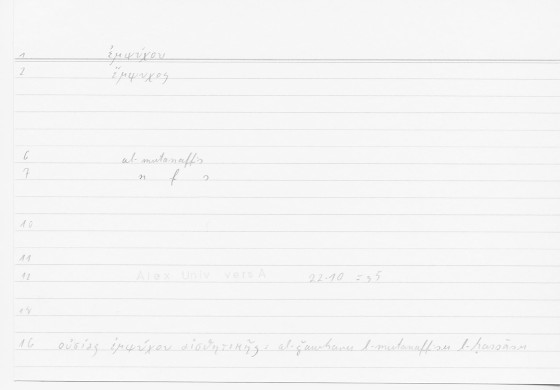 1 ἐμψύχου
2 ἔμψυχος
6 al-mutanaffis
7 n f s
10
11
12 Alex Univ vers A 22.10 = 25
16 οὐσίας ἐμψύχου αἰσθητικῆς: al-ǧawhari l-mutanaffisi l-ḥassāsi